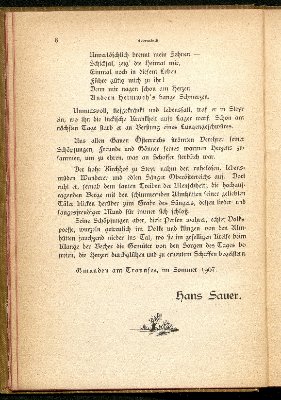 8
Unauslöschlich brennt mein Sehnen —
Schicksal, zeig' die Heimat mir,
Einmal noch in diesem Leben
Führe gütig mich zu ihr!
Denn mir nagen schon am Herzen
Andern Heimweh's bange Schmerzen.
Unmutsvoll, tiefgekränkt und leidensvoll, traf er in Steyr
an, wo ihn die tückische Krankheit aufs Lager warf. Schon am
nächsten Tage starb er an Berstung eines Lungengeschwüres.
Aus allen Gauen Österreichs strömten Verehrer seiner
Schöpfungen, Freunde und Gönner seines warmen Herzens zu-
sammen, um zu ehren, was an Schosser sterblich war.
Der hohe Kirchhof zu Steyr nahm den ruhelosen, lebens-
müden Wanderer und edlen Sänger Oberösterreichs auf. Dort
ruht er, fernab dem lauten Treiben der Menschheit; die hochauf-
ragenden Berge mit den schlummernden Almhütten seiner geliebten
Täler blicken herüber zum Grabe des Sängers, dessen lieder- und
sangesfreudiger Mund für immer sich schloß.
Seine Schöpfungen aber, diese Perlen wahrer, echter Volks-
poesie, wurzeln getreulich im Volke und klingen von den Alm-
hütten jauchzend nieder ins Tal, wo sie im geselligen Kreise beim
Klange der Becher die Gemüter von den Sorgen des Tages be-
freien, die Herzen durchglühen und zu erneutem Schaffen begeistern.
Gmunden am Traunsee, im Sommer 1907.
Hans Sauer.